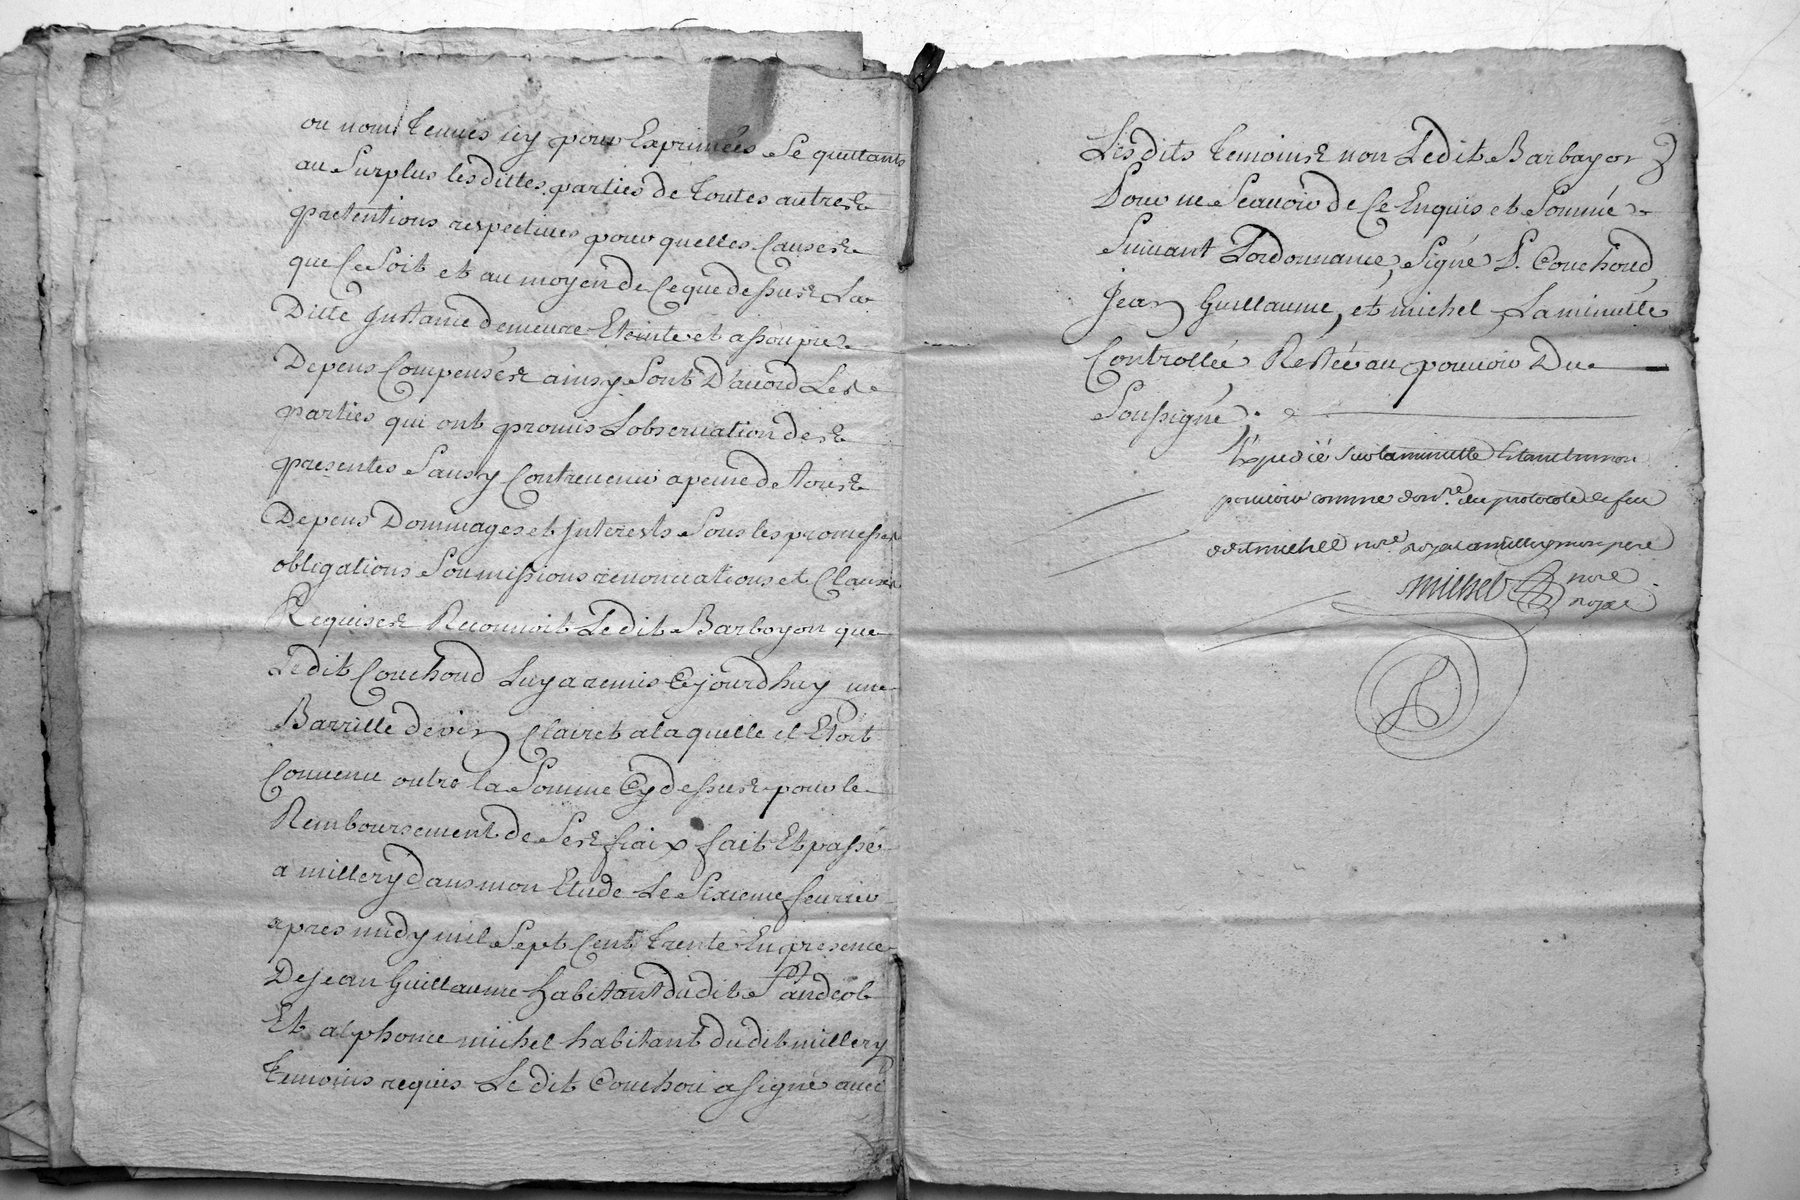 ou nom tenues icy pour Exprimées Se quittants
au Surplus lesdittes parties de toutes autres
pretentions respectives pour quelles Causes
que Ce Soit et au moyen de Ce que dessus La
Ditte Instance demeure Eteinte et assoupie
Depens Compensés ainsy Sont D'acord Les
parties qui ont promis Lobservation des
presentes Sans y Contrevenir a peine de tous
Depens Dommages et Interests Sous les promesses
obligations Soumissions renonciations et Clauses
Requises Reconnoit Ledit Barboyon que
Ledit Couchoud Luy a remis Cejourdhuy une
Barrille de vin Clairet a laquelle il Etoit
Convenu outre la Somme Cy dessus pour le
Remboursement de Ses fraix fait Et passé
a millery dans mon Etude Le Sixieme fevrier
apres midy mil Sept Cent trente En presence
De jean Guillaume habitant dudit St andeol
Et alphonce michel habitant dudit millery
temoins requis Le dit Couchou a signé avec
Lesdits temoins non Ledit Barbayon
Pour ne Scavoir de Ce Enquis et Sommé
Suivant Lordonnance, Signé P. Couchoud,
Jean Guillaume, et michel, La minutte
Controllée Restée au pouvoir Du
Soussigné.
Expedié Sur la minutte Etant en mon
pouvoir comme du protocole de feu
michel nore. royal a millery mon pere
Michel nore
royal